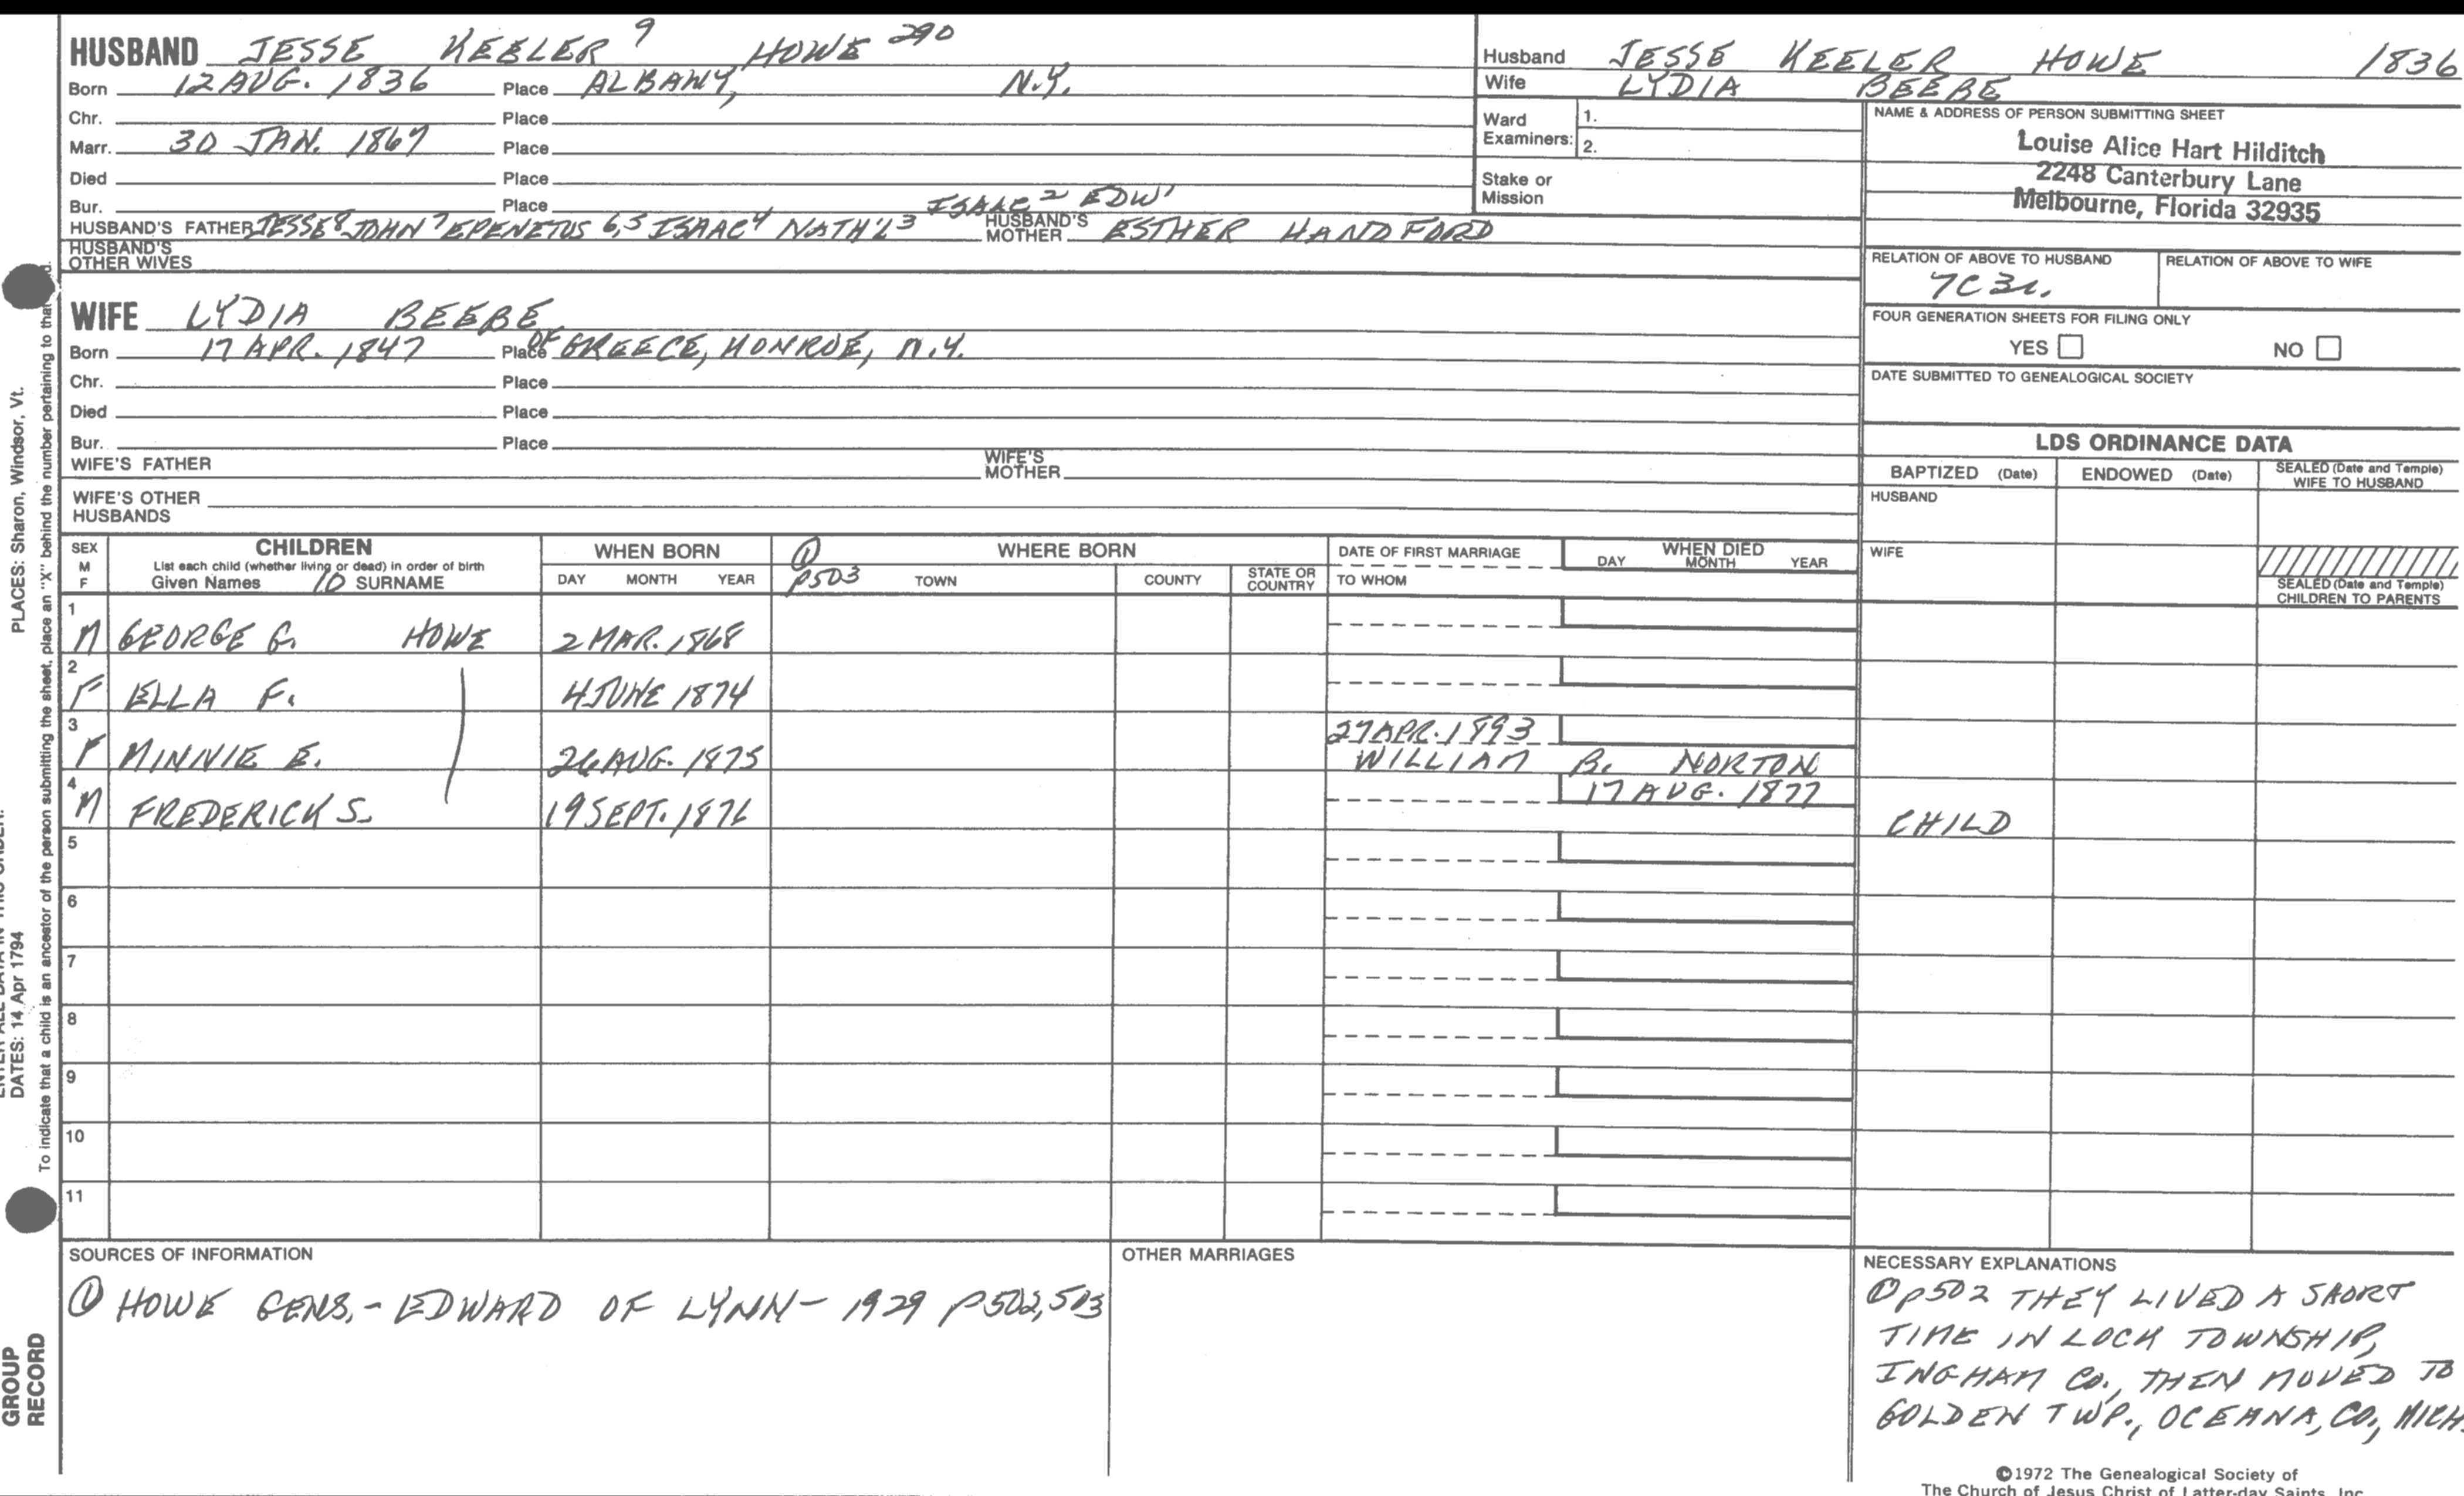 HUSBAND JESSE KEELER 9 HOWE 290
Born 12 AUG. 1836 Place ALBANY, N.Y.
Chr. Place
Marr. 30 JAN. 1867 Place
Died Place
Bur. Place ISAAC 2 EDW 1
HUSBAND'S FATHER JESSE 8 JOHN 7 EPENETUS 6,5 ISAAC 4 NATH'L 3 HUSBAND'S MOTHER ESTHER HANDFORD
HUSBAND'S OTHER WIVES
WIFE LYDIA BEEBE
Born 17 APR. 1847 Place OF GREECE, MONROE, N.Y.
Chr. Place
Died Place
Bur. Place
WIFE'S FATHER WIFE'S MOTHER
WIFE'S OTHER HUSBANDS
Husband JESSE KEELER HOWE 1836
Wife LYDIA BEEBE
Ward Examiners: 1.
2.
Stake or Mission
NAME & ADDRESS OF PERSON SUBMITTING SHEET
Louise Alice Hart Hilditch
2248 Canterbury Lane
Melbourne, Florida 32935
RELATION OF ABOVE TO HUSBAND RELATION OF ABOVE TO WIFE
7C3r.
FOUR GENERATION SHEETS FOR FILING ONLY
YES NO
DATE SUBMITTED TO GENEALOGICAL SOCIETY
LDS ORDINANCE DATA
BAPTIZED (Date) ENDOWED (Date) SEALED (Date and Temple) WIFE TO HUSBAND
HUSBAND
WIFE
SEALED (Date and Temple) CHILDREN TO PARENTS
SEX M F
CHILDREN
List each child (whether living or dead) in order of birth
Given Names 10 SURNAME
WHEN BORN
DAY MONTH YEAR
① p503
WHERE BORN
TOWN COUNTY STATE OR COUNTRY
DATE OF FIRST MARRIAGE
TO WHOM
WHEN DIED
DAY MONTH YEAR
1 M GEORGE G. HOWE 2 MAR. 1868
2 F ELLA F. 4 JUNE 1874
3 F MINNIE E. 26 AUG. 1875 27 APR. 1893
WILLIAM B. NORTON
4 M FREDERICK S. 19 SEPT. 1876 17 AUG. 1877 CHILD
5
6
7
8
9
10
11
SOURCES OF INFORMATION
① HOWE GENS.- EDWARD OF LYNN- 1929 p502,503
OTHER MARRIAGES
NECESSARY EXPLANATIONS
① p502 THEY LIVED A SHORT
TIME IN LOCK TOWNSHIP,
INGHAM CO., THEN MOVED TO
GOLDEN TWP., OCEANA, CO., MICH.
©1972 The Genealogical Society of
The Church of Jesus Christ of Latter-day Saints, Inc.
PLACES: Sharon, Windsor, Vt.
DATES: 14 Apr 1794
To indicate that a child is an ancestor of the person submitting the sheet, place an "X" behind the number pertaining to that
GROUP
RECORD